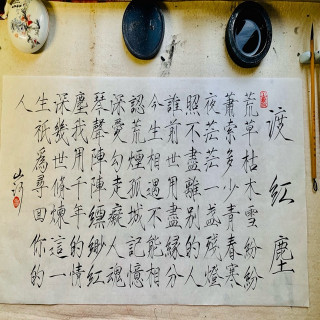 渡紅塵
荒草枯木雪紛紛
蕭索多少青春寒
夜茫茫一盞殘燈
照不盡離別的人
誰前世用盡緣分
今生相遇不能相
認荒煙孤城記憶
深愛勾走癡人魂
琴聲陣陣縹緲紅
塵我用千年的情
深幾世修煉這一
生祇為尋回你的
人